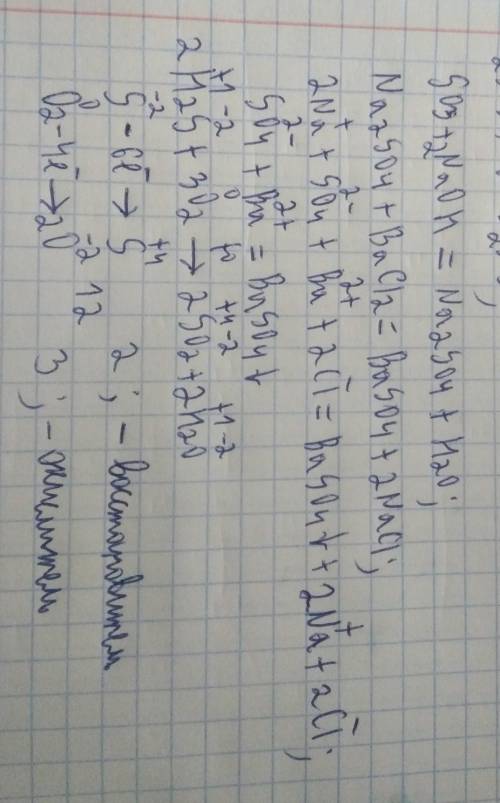 SO3 + 2NaOH = Na2SO4 + H2O;
Na2SO4 + BaCl2 = BaSO4 + 2NaCl;
2Na⁺ + SO4²⁻ + Ba²⁺ + 2Cl⁻ = BaSO4↓ + 2Na⁺ + 2Cl⁻;
SO4²⁻ + Ba²⁺ = BaSO4↓
+1 -2 0 +4 -2 +1 -2
2H2S + 3O2 → 2SO2 + 2H2O
S⁻² - 6e̅ → S⁺⁴ 2; - восстановитель
O2⁰ - 4e̅ → 2O⁻² 12 3; - окислитель